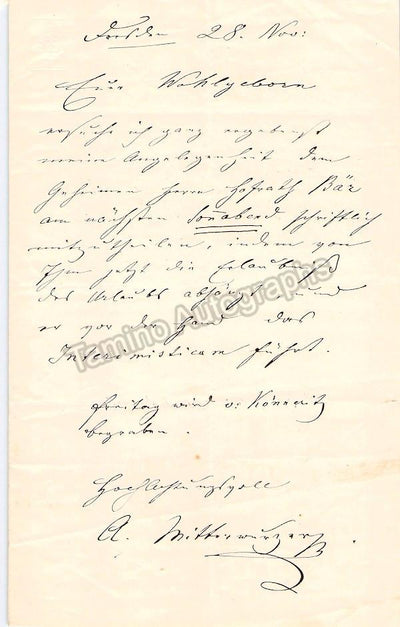 Dresden 28. Nov:
Euer Wohlgeborn
ersuche ich ganz ergebenst
meine Angelegenheit dem
Geheimen Herrn Hofrath Bär
am nächsten Sonnabend schriftlich
mitzutheilen, indem von
Ihm jetzt die Erlaubniß
des Urlaubs abhängt und
er vor der Hand das
Interimisticum führt.
Freitag wird v: Könneritz
begraben.
Hochachtungsvoll
A. Mitterwurzer
Tamino Autographs